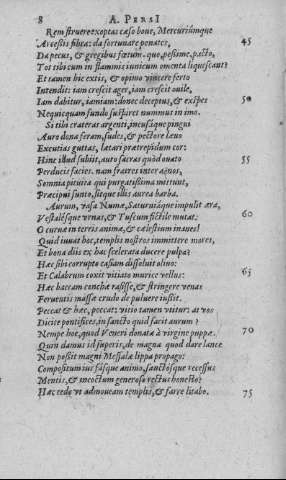 8 A. PERSI
Rem struere exoptas cæso bove, Mercuriúmque
Arcessis fibra: da fortunare penates,
45
Da pecus, & gregibus fœtum. quo, pessime, pacto,
Tot tibi cum in flammis iunicum omenta liquescant?
Et tamen hic extis, & opimo vincere ferto
Intendit: iam crescit ager, iam crescit ovile,
Iam dabitur, iamiam: donec deceptus, & exspes
50
Nequicquam fundo suspiret nummus in imo.
Si tibi crateras argenti, incusáque pingui
Auro dona feram, sudes, & pectore lævo
Excutias guttas, lætari prætrepidum cor:
Hinc illud subiit, auro sacras quòd ovato
55
Perducis facies. nam fratres inter aënos,
Somnia pituita qui purgatissima mittunt,
Præcipui sunto, sitque illis aurea barba.
Aurum, vasa Numæ, Saturniáque impulit æra,
Vestalésque urnas, & Tuscum fictile mutat.
60
O curuæ in terris animæ, & cælestium inanes!
Quid iuvat hoc, templis nostros immittere mores,
Et bona diis ex hac scelerata ducere pulpa?
Hæc sibi corrupto casiam dissolvit olivo:
Et Calabrum coxit vitiato murice vellus:
65
Hæc baccam conchæ rasisse, & stringere venas
Ferventis massæ crudo de pulvere iussit.
Peccat & hæc, peccat: vitio tamen vtitur: at vos
Dicite pontifices, in sancto quid facit aurum?
Nempe hoc, quod Veneri donatæ à virgine puppæ.
70
Quin damus id superis, de magna quod dare lance
Non possit magni Messalæ lippa propago:
Compositum ius fásque animo, sanctósque recessus
Mentis, & incoctum generoso pectus honesto?
Hæc cedo vt admoveam templis, & farre litabo.
75